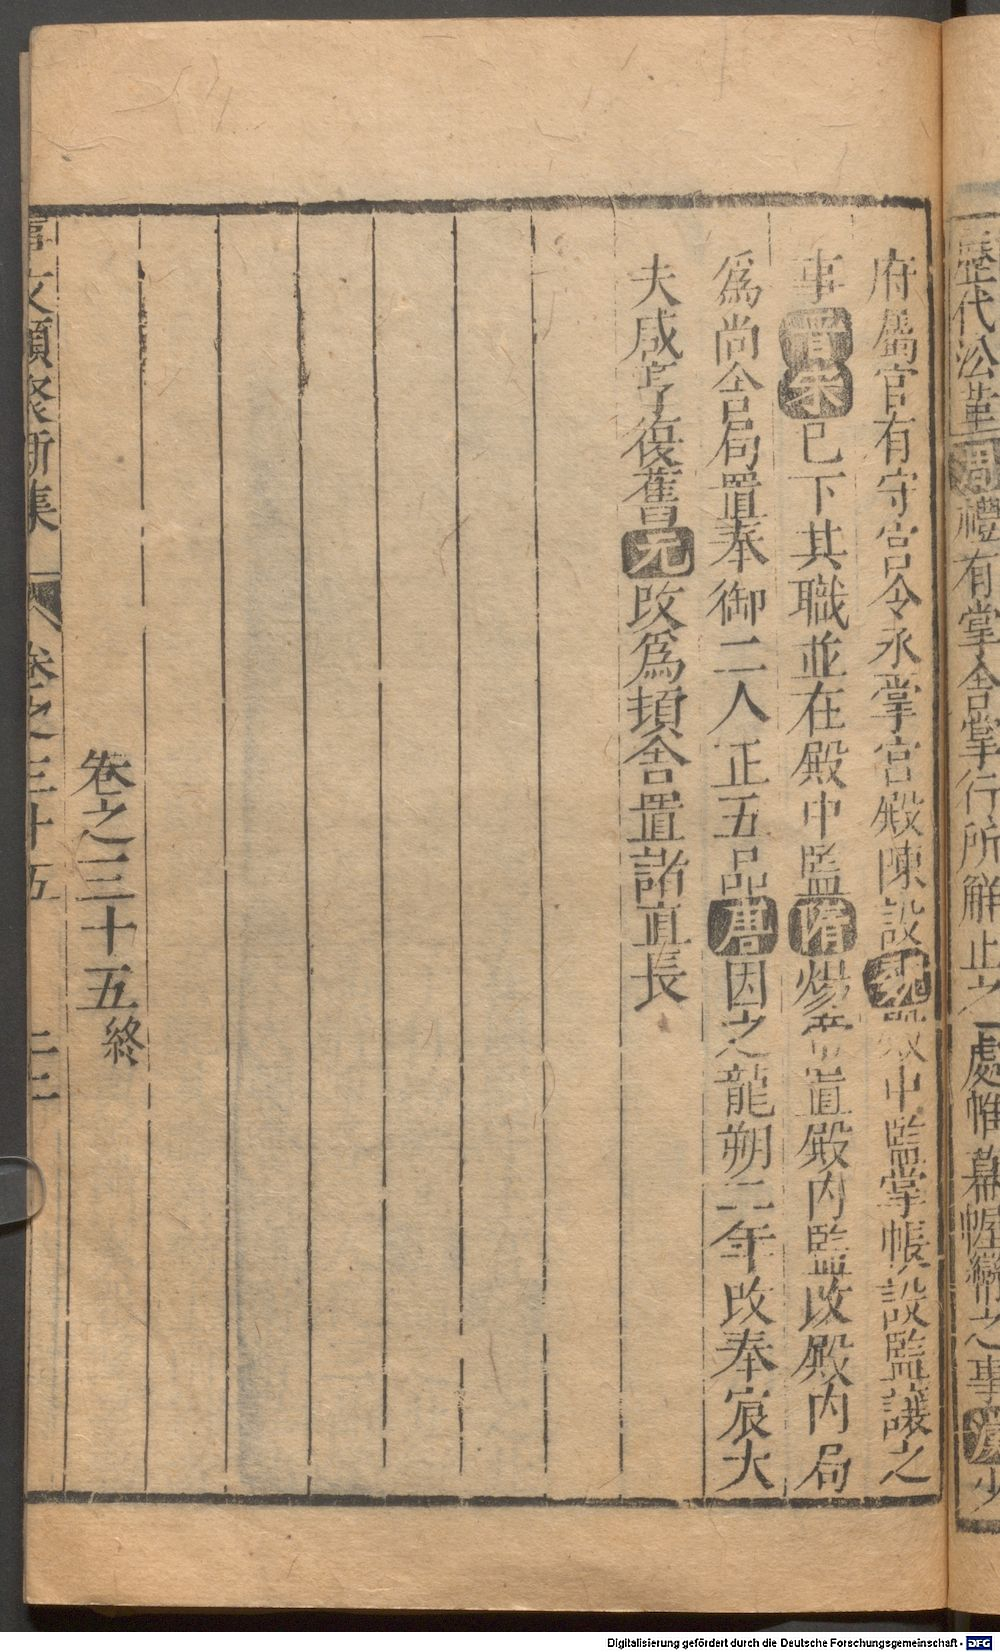 歷代沿革周禮有掌舍掌行所解止之處帷幕幄之事漢少
府屬官有守宮令丞掌宮殿陳設魏殿中監掌帳設監護之
事晉宋已下其職並在殿中監隋煬帝置殿內監改殿內局
為尚舍局置奉御二人正五品唐因之龍朔二年改奉扆大
夫咸亨復舊元改為頓舍置諸直長
卷之三十五終
事文類聚新集
卷之三十五
二十二
Digitalisierung gefördert durch die Deutsche Forschungsgemeinschaft - DFG